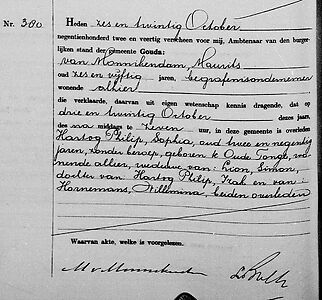 Nr. 380.
Heden zes en twintig October
negentienhonderd twee en veertig verscheen voor mij, Ambtenaar van den burger-
lijken stand der gemeente Gouda:
van Monnikendam, Maurits
oud zes en vijftig jaren, begrafenisondernemer
wonende alhier
die verklaarde, daarvan uit eigen wetenschap kennis dragende, dat op
drie en twintig October dezes jaars,
des na middags te zeven uur, in deze gemeente is overleden
Hartog Philip, Sophia, oud twee en negentig
jaren, zonder beroep, geboren te Oude Tonge, wo-
nende alhier, weduwe van: Lion, Simon,
dochter van: Hartog Philip, Izak en van:
Hornemans, Willemina, beiden overleden
Waarvan akte, welke is voorgelezen.
M v Monnikendam